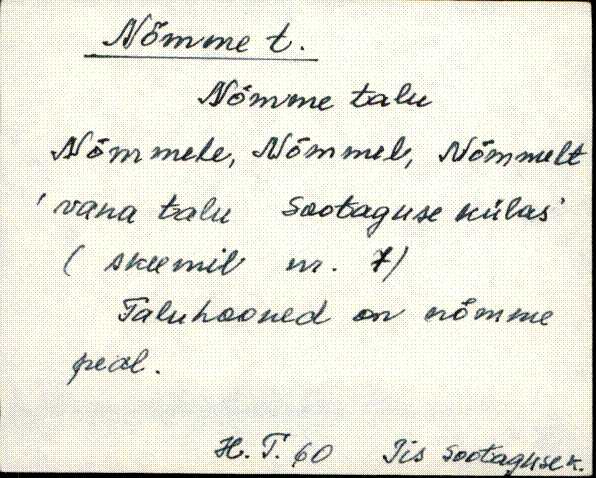 Nõmme t.
Nõmme talu
Nõmmele, Nõmmel, Nõmmelt
'vana talu Sootaguse külas'
(skeemil nr. 7)
Taluhooned on nõmme
peal.
H. T. 60 Iis Sootaguse k.